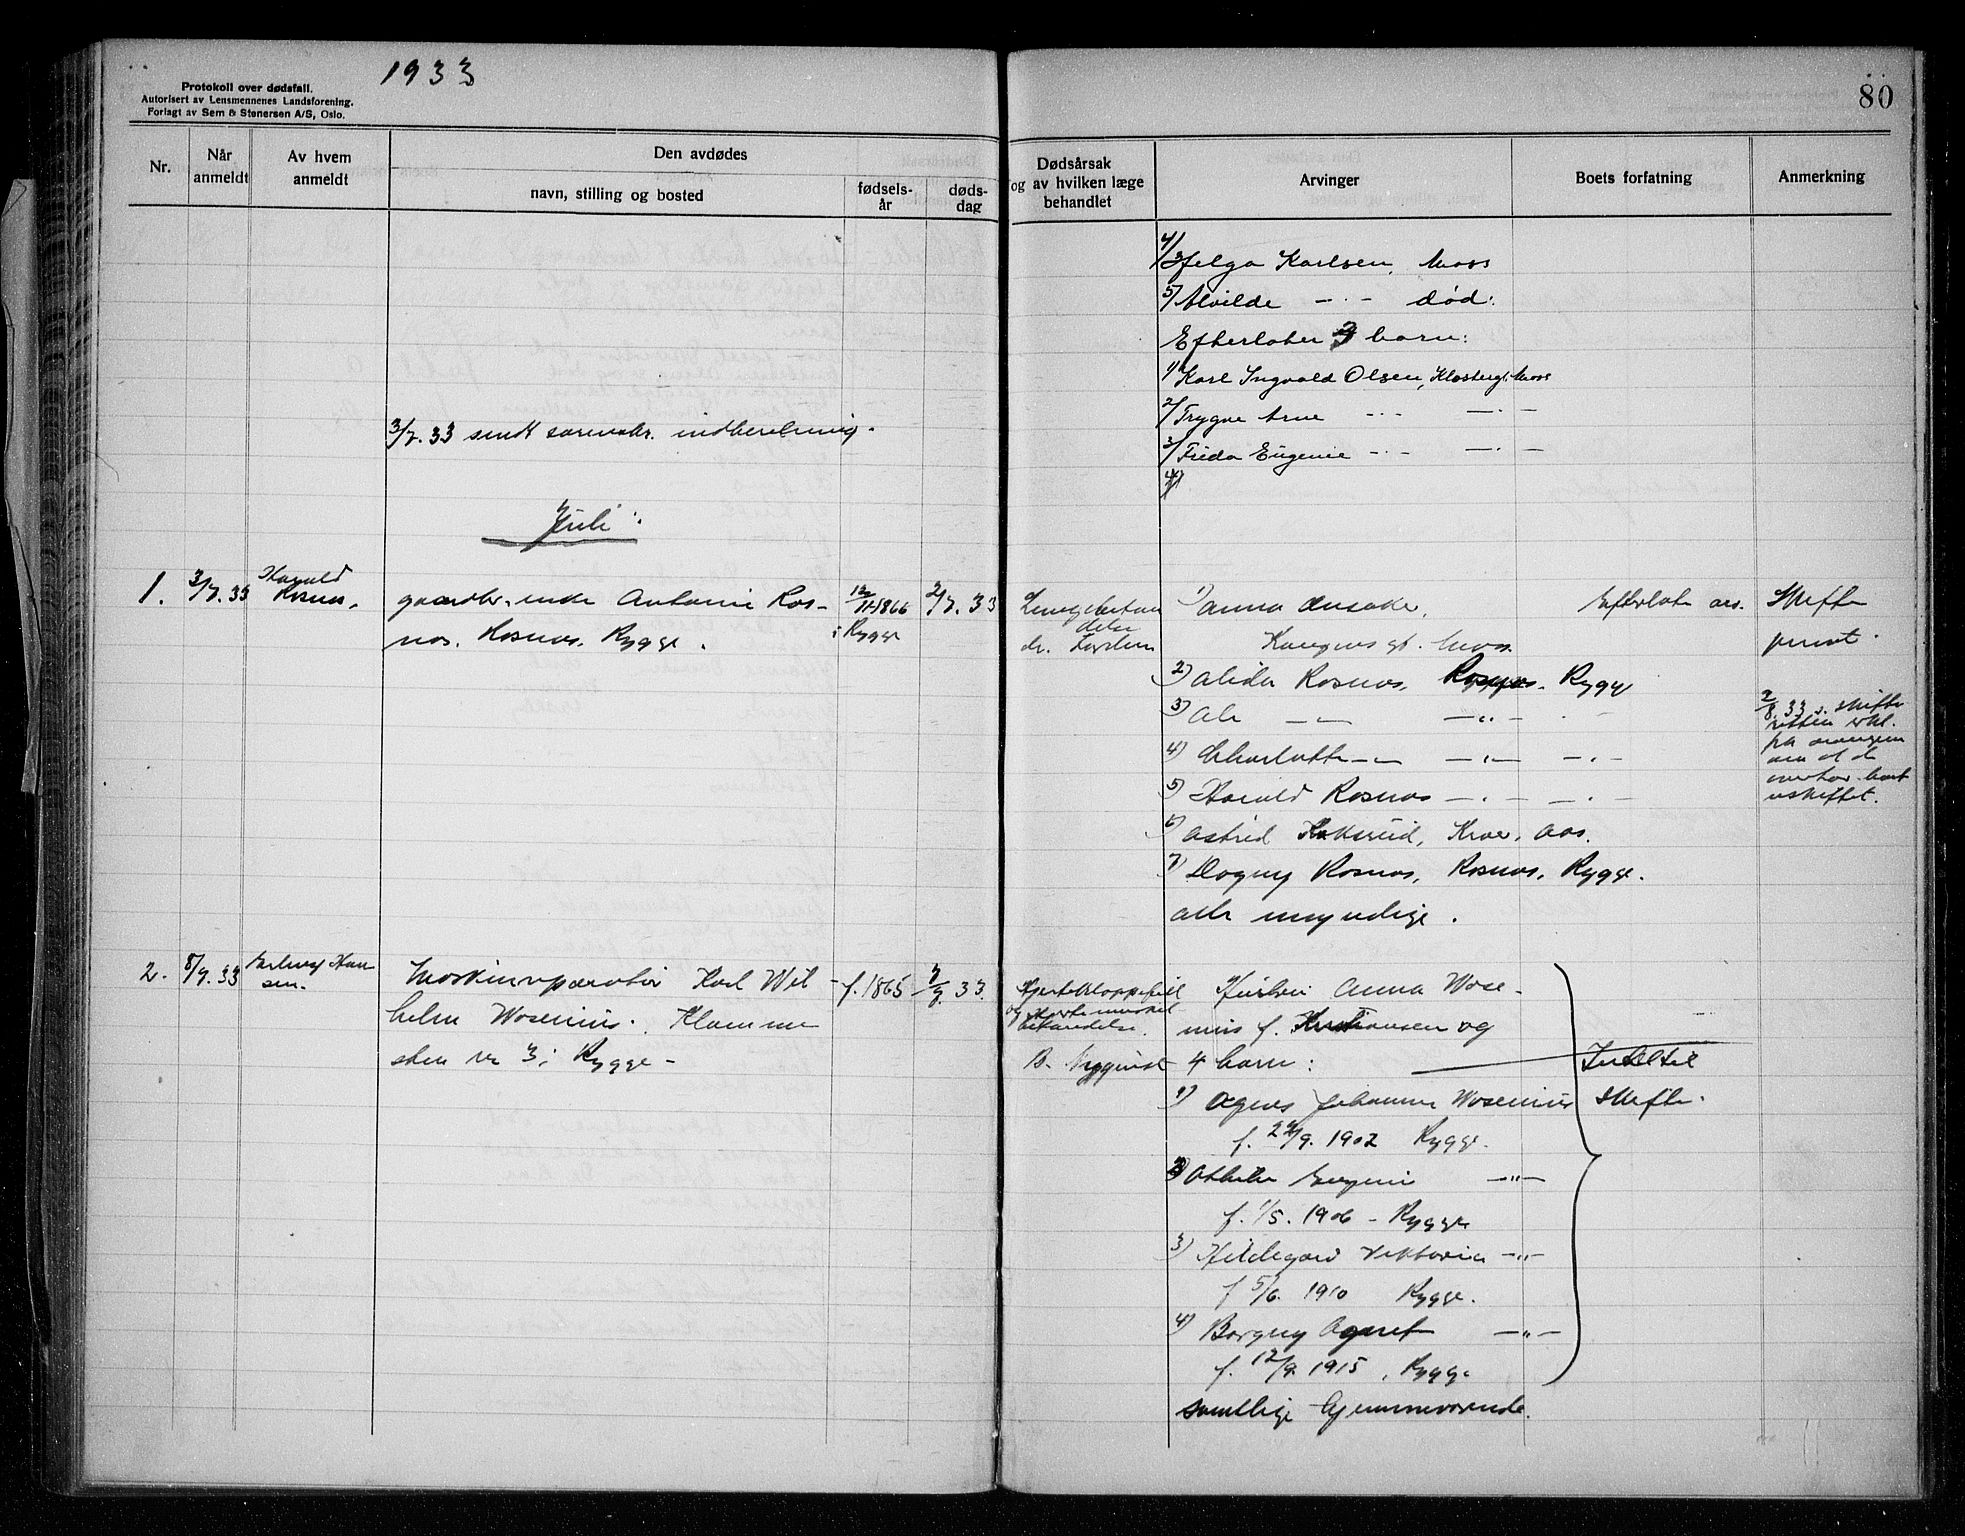 1933
80
Protokoll over dødsfall.
Autorisert av Lensmennenes Landsforening.
Forlagt av Sem & Stenersen A/S, Oslo.
Nr.
Når anmeldt
Av hvem anmeldt
Den avdødes
navn, stilling og bosted
fødsels-år
døds-dag
Dødsårsak
og av hvilken læge
behandlet
Arvinger
Boets forfatning
Anmerkning
4/ Helga Karlsen, Moss
5/ Alvilde -·- død:
Efterlater 3 barn:
1/ Karl Ingvald Olsen, Moss
2/ Trygve Arne -·- -·-
3/ Frida Eugenie -·- -·-
4/
3/7.33 sendt indberetning.
Juli:
1.
3/7.33
Harald
Rosnes,
gaardbr. enke Antonie Ros-
nes, Rosnes, Rygge.
12/11-1866
i Rygge
2/7.33
dr.
1) Anna
Kongens gt. Moss.
2) Alida Rosnes, Rosnes, Rygge
3) -"- -"-
4) Charlotte -"- -"- -"-
5) Harald Rosnes -·- -·-
6) Astrid Kroer, Aas.
7) Dagny Rosnes, Rosnes, Rygge.
alle myndige.
Skifte
privat.
2/8 33 s. skifte
retten
uskiftet.
2.
8/7.33
Han
sen.
Maskinoperatør Karl Wil-
helm Wosenius.
sten nr 3 i Rygge -
f. 1865
7/7.33.
behandelse.
B. Nyquist
Hustru Anna Wose-
nius f. Kristiansen og
4 barn:
1) Agnes Johanne Wosenius
f. 22/9. 1902 Rygge.
2) Eugenie -"-
f. 1/5. 1906 - Rygge
3) Hildegard Viktoria -"-
f 5/6. 1910 Rygge.
4) Borgny Agnet -"-
f. 12/9. 1915, Rygge
samtlige hjemmeværende.
Intet til
skifte.